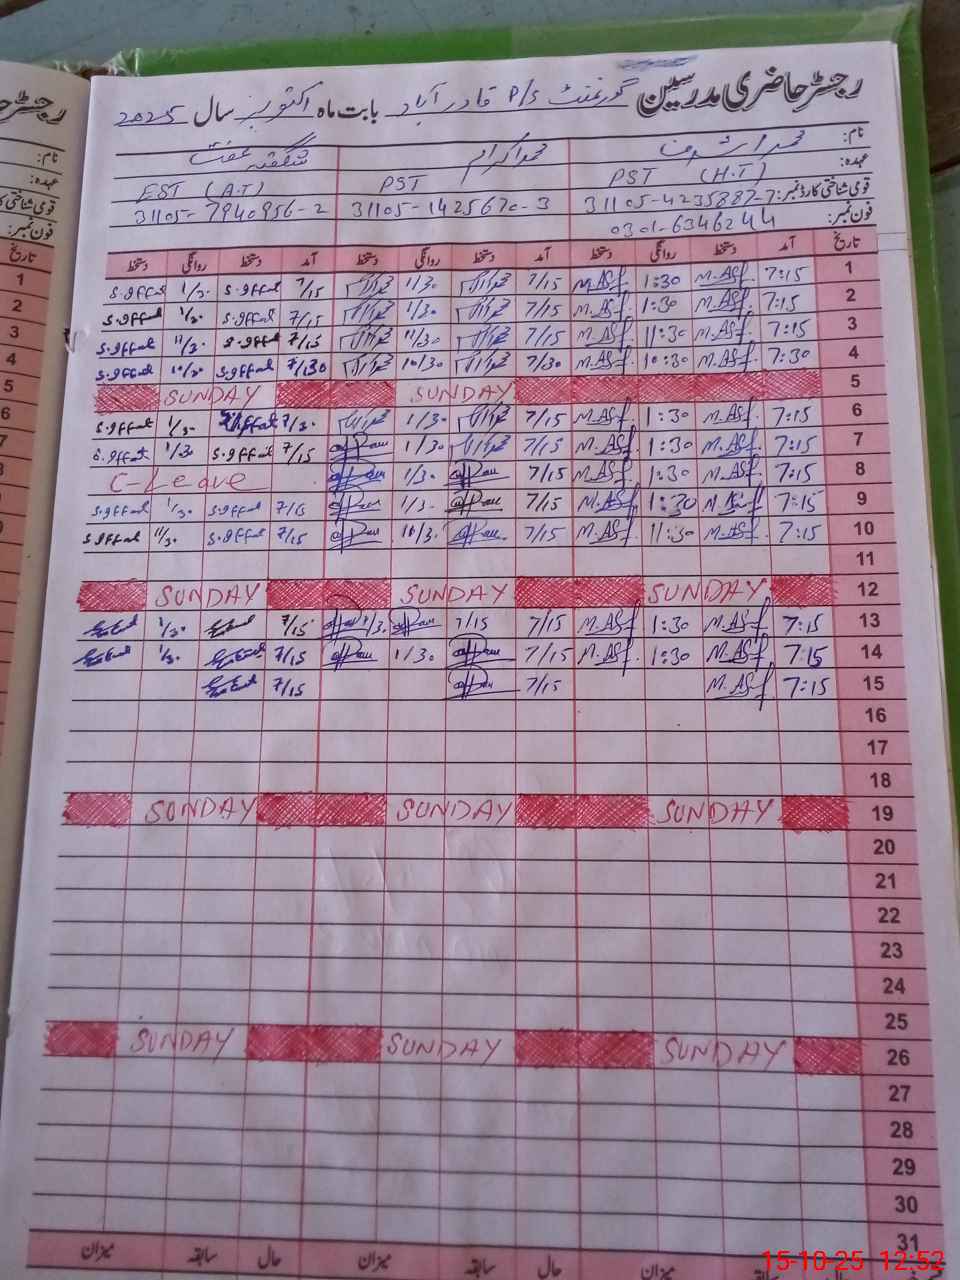 رجسٹر حاضری مدرسین گورنمنٹ P/S قادر آباد بابت ماہ اکتوبر سال 2025
نام: محمد اشرف محمد اکرام شگفتہ عفت
عہدہ: PST (H.T) PST EST (A.T)
قومی شناختی کارڈ نمبر: 31105-4235887-7 31105-1425670-3 31105-7940956-2
فون نمبر: 0301-6346244
تاریخ آمد دستخط روانگی دستخط آمد دستخط روانگی دستخط آمد دستخط روانگی دستخط
1 7:15 M.Asf 1:30 M.Asf 7/15 1/30 7/15 S.Iffat 1/30 S.Iffat
2 7:15 M.Asf 1:30 M.Asf 7/15 1/30 7/15 S.Iffat 1/30 S.Iffat
3 7:15 M.Asf 11:30 M.Asf 7/15 11/30 7/15 S.Iffat 11/30 S.Iffat
4 7:30 M.Asf 10:30 M.Asf 7/30 10/30 7/30 S.Iffat 10/30 S.Iffat
5 SUNDAY SUNDAY
6 7:15 M.Asf 1:30 M.Asf 7/15 1/30 S.Iffat 1/30 S.Iffat
7 7:15 M.Asf 1:30 M.Asf 7/15 1/30 7/15 S.Iffat 1/30 S.Iffat
8 7:15 M.Asf 1:30 M.Asf 7/15 1/30 C-Leave
9 7:15 M.Asf 1:30 M.Asf 7/15 1/30 7/15 S.Iffat 1/30 S.Iffat
10 7:15 M.Asf 11:30 M.Asf 7/15 10/30 7/15 S.Iffat 11/30 S.Iffat
11
12 SUNDAY SUNDAY SUNDAY
13 7:15 M.Asf 1:30 M.Asf 7/15 7/15 1/30 7/15 1/30
14 7:15 M.Asf 1:30 M.Asf 7/15 1/30 7/15 1/30
15 7:15 M.Asf 7/15 7/15
16
17
18
19 SUNDAY SUNDAY SUNDAY
20
21
22
23
24
25
26 SUNDAY SUNDAY SUNDAY
27
28
29
30
31
میزان سابقہ حال میزان سابقہ حال میزان
15-10-25 12:52